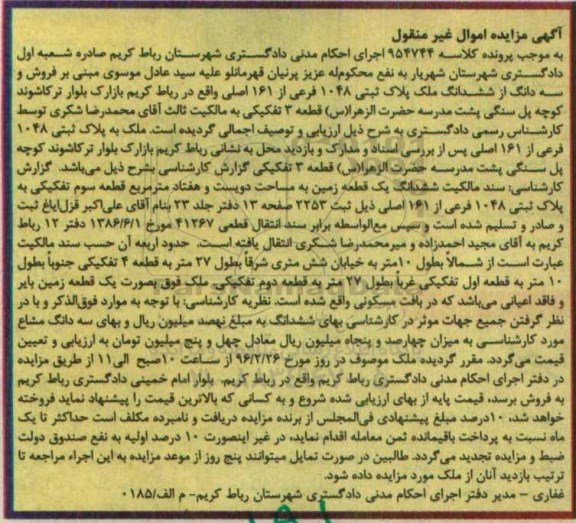 آگهی مزایده اموال غیر منقول
به موجب پرونده کلاسه ۹۵۴۷۴۴ اجرای احکام مدنی دادگستری شهرستان رباط کریم صادره شعبه اول
دادگستری شهرستان شهریار به نفع محکوم‌له عزیز پرنیان قهرمانلو علیه سید عادل موسوی مبنی بر فروش و
سه دانگ از ششدانگ ملک پلاک ثبتی ۱۰۴۸ فرعی از ۱۶۱ اصلی واقع در رباط کریم بازارک بلوار ترکاشوند
کوچه پل سنگی پشت مدرسه حضرت الزهرا(س) قطعه ۳ تفکیکی به مالکیت ثالث آقای محمدرضا شکری توسط
کارشناس رسمی دادگستری به شرح ذیل ارزیابی و توصیف اجمالی گردیده است. ملک به پلاک ثبتی ۱۰۴۸
فرعی از ۱۶۱ اصلی پس از بررسی اسناد و مدارک و بازدید محل به نشانی رباط کریم بازارک بلوار ترکاشوند کوچه
پل سنگی پشت مدرسه حضرت الزهرا(س) قطعه ۳ تفکیکی گزارش کارشناسی بشرح ذیل می‌باشد. گزارش
کارشناسی: سند مالکیت ششدانگ یک قطعه زمین به مساحت دویست و هفتاد مترمربع قطعه سوم تفکیکی به
پلاک ثبتی ۱۰۴۸ فرعی از ۱۶۱ اصلی ذیل ثبت ۲۲۵۳ صفحه ۱۳ دفتر جلد ۲۳ بنام آقای علی‌اکبر قزل‌ایاغ ثبت
و صادر و تسلیم شده است و سپس مع‌الواسطه برابر سند انتقال قطعی ۴۱۲۶۷ مورخ ۱۳۸۶/۶/۱ دفتر ۱۲ رباط
کریم به آقای مجید احمدزاده و میرمحمدرضا شکری انتقال یافته است. حدود اربعه آن حسب سند مالکیت
عبارت است از شمالاً بطول ۱۰متر به خیابان شش متری شرقاً بطول ۲۷ متر به قطعه ۴ تفکیکی جنوباً بطول
۱۰ متر به قطعه اول تفکیکی غرباً بطول ۲۷ متر به قطعه دوم تفکیکی. ملک فوق بصورت یک قطعه زمین بایر
و فاقد اعیانی می‌باشد که در بافت مسکونی واقع شده است. نظریه کارشناسی: با توجه به موارد فوق‌الذکر و با در
نظر گرفتن جمیع جهات موثر در کارشناسی بهای ششدانگ به مبلغ نهصد میلیون ریال و بهای سه دانگ مشاع
مورد کارشناسی به میزان چهارصد و پنجاه میلیون ریال معادل چهل و پنج میلیون تومان به ارزیابی و تعیین
قیمت می‌گردد. مقرر گردیده ملک موصوف در روز مورخ ۹۶/۲/۲۶ از ساعت ۱۰صبح الی۱۱ از طریق مزایده
در دفتر اجرای احکام مدنی دادگستری رباط کریم واقع در رباط کریم. بلوار امام خمینی دادگستری رباط کریم
به فروش برسد، قیمت پایه از بهای ارزیابی شده شروع و به کسانی که بالاترین قیمت را پیشنهاد نماید فروخته
خواهد شد، ۱۰درصد مبلغ پیشنهادی فی‌المجلس از برنده مزایده دریافت و نامبرده مکلف است حداکثر تا یک
ماه نسبت به پرداخت باقیمانده ثمن معامله اقدام نماید، در غیر اینصورت ۱۰ درصد اولیه به نفع صندوق دولت
ضبط و مزایده تجدید می‌گردد. طالبین در صورت تمایل میتوانند پنج روز از موعد مزایده به این اجراء مراجعه تا
ترتیب بازدید آنان از ملک مورد مزایده داده شود.
غفاری - مدیر دفتر اجرای احکام مدنی دادگستری شهرستان رباط کریم- م الف/۰۱۸۵